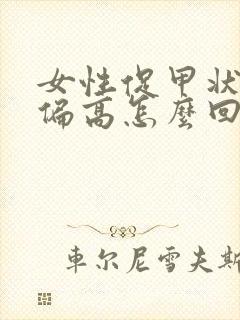 女性促甲状
偏高怎麼回
車尔尼雪夫斯